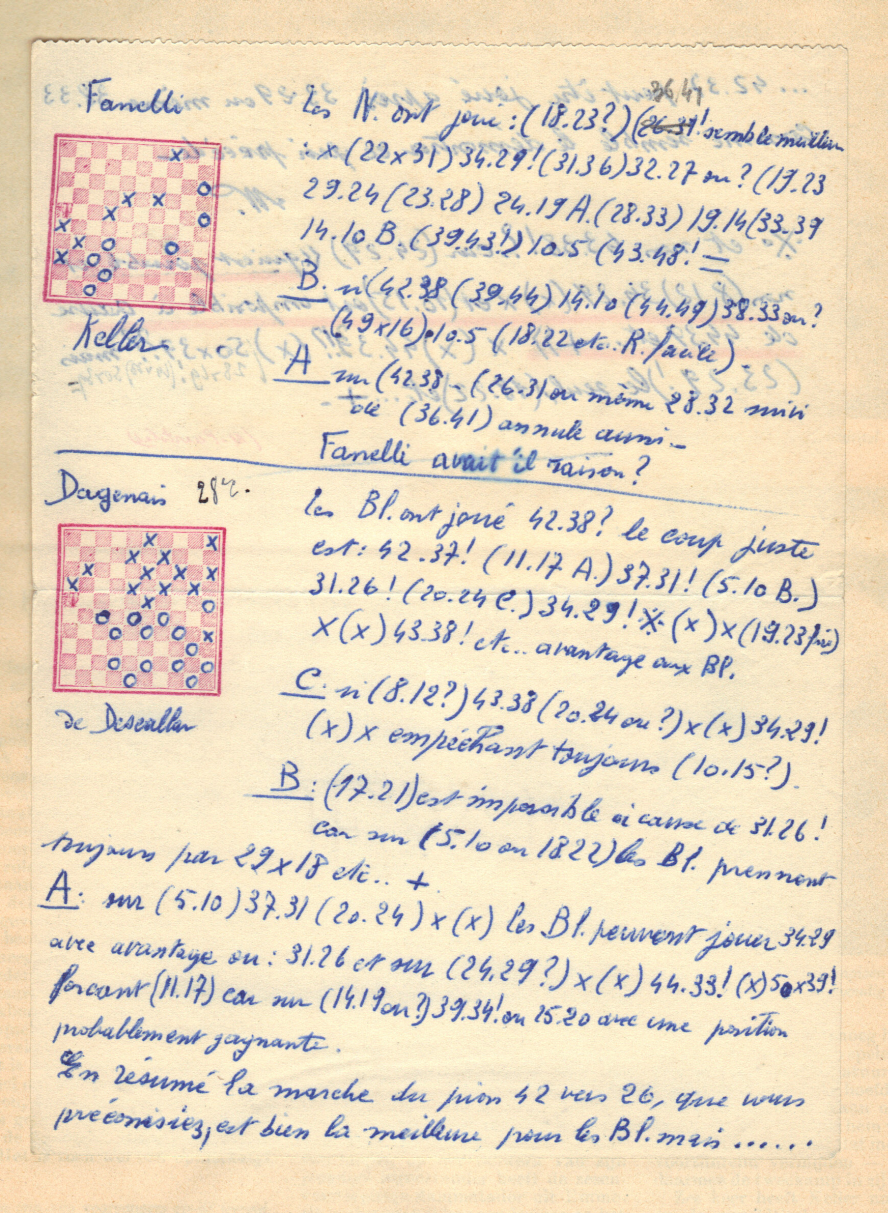 Fanelli
Keller
36,41
Les N. ont joué : (18.23?) (26.31! semble meilleur
: x (22x31) 34.29! (31.36) 32.27 ou? (19.23
29.24 (23.28) 24.19 A. (28.33) 19.14 (33.39
14.10 B. (39.43!) 10.5 (43.48! =
B. si (42.38 (39.44) 14.10 (44.49) 38.33 ou?
(49x16) 10.5 (18.22 etc. R. facile)
A sur (42.38 (26.31 ou même 28.32 suivi
de (36.41) annule aussi.-
Fanelli avait il raison?
Dagenais 28e.
de Descallar
Les Bl. ont joué 42.38? le coup juste
est : 42.37! (11.17 A.) 37.31! (5.10 B.)
31.26! (20.24 C.) 34.29! x (x) x (19.23
x (x) 43.38! etc.. avantage aux Bl.
C. si (8.12?) 43.38 (20.24 ou?) x (x) 34.29!
(x) x empêchant toujours (10.15?).
B : (17.21) est impossible à cause de 31.26!
car sur (5.10 ou 18.22) les Bl. prennent
toujours par 29x18 etc.. +
A : sur (5.10) 37.31 (20.24) x (x) les Bl. peuvent jouer 34.29
avec avantage ou : 31.26 et sur (24.29?) x (x) 44.33! (x) 50x39!
forcant (11.17) car sur (14.19 ou?) 39.34! ou 25.20 avec une position
probablement gagnante.
En résumé la marche du pion 42 vers 26, que vous
préconisiez, est bien la meilleure pour les Bl. mais ......